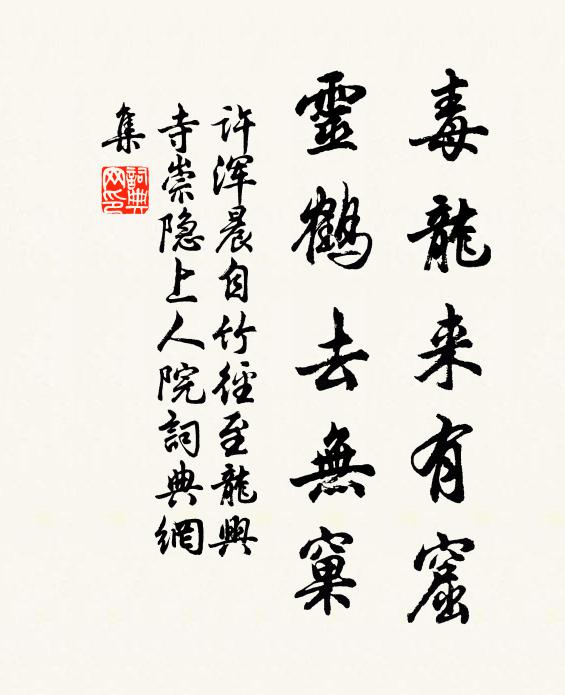 毒龍来有窟
靈鶴去無窠
许渾晨自竹徑至龍興
寺崇隐上人院詞典網
集
詞典
网印